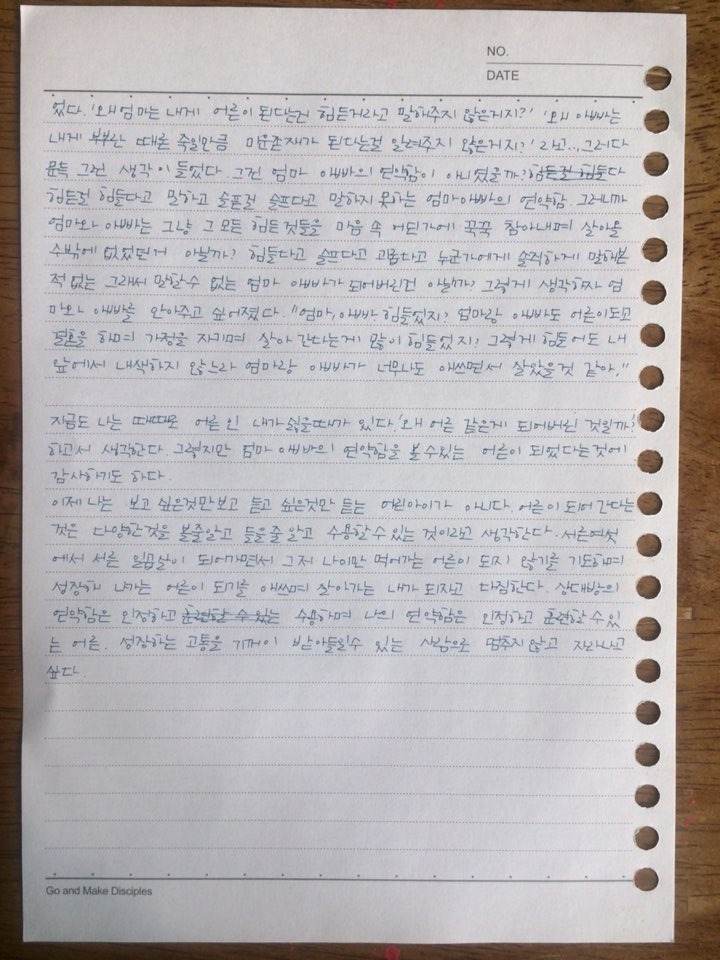 NO.
DATE
었다. '왜 엄마는 내게 어른이 된다는건 힘든거라고 말해주지 않은거지?' '왜 아빠는
내게 때론 죽일만큼 미운존재가 된다는걸 알려주지 않은거지?' 라고... 그러다
문득 그런 생각이 들었다. 그건 엄마 아빠의 연약함이 아니었을까? 힘든걸 힘들다
힘든걸 힘들다고 말하고 슬픈걸 슬프다고 말하지 못하는 엄마아빠의 연약함. 그러니까
엄마와 아빠는 그냥 그 모든 힘든것들을 마음 속 어딘가에 꾹꾹 참아내며 살아올
수밖에 없었던거 아닐까? 힘들다고 슬프다고 괴롭다고 누군가에게 솔직하게 말해본
적 없는 그래서 말할수 없는 엄마 아빠가 되어버린건 아닐까? 그렇게 생각하자 엄
마와 아빠를 안아주고 싶어졌다. "엄마, 아빠 힘들었지? 엄마랑 아빠도 어른이되고
결혼을 하며 가정을 지키며 살아 간다는게 많이 힘들었지? 그렇게 힘들어도 내
앞에서 내색하지 않느라 엄마랑 아빠가 너무나도 애쓰면서 살았을것 같아."
지금도 나는 때때로 어른인 내가 싫을때가 있다. '왜 어른 같은게 되어버린 것일까?'
하고서 생각한다. 그렇지만 엄마 아빠의 연약함을 볼수있는 어른이 되었다는것에
감사하기도 하다.
이제 나는 보고 싶은것만 보고 듣고 싶은것만 듣는 어린아이가 아니다. 어른이 되어 간다는
것은 다양한것을 볼줄알고 들을줄 알고 수용할수 있는 것이라고 생각한다. 서른여섯
에서 서른 일곱살이 되어가면서 그저 나이만 먹어가는 어른이 되지 않기를 기도하며
성장해 나가는 어른이 되기를 애쓰며 살아가는 내가 되자고 다짐한다. 상대방의
연약함은 인정하고 훈련할 수 있는 수용하며 나의 연약함은 인정하고 훈련할 수 있
는 어른. 성장하는 고통을 기꺼이 받아들일수 있는 사람으로 멈추지않고 자라나고
싶다.
Go and Make Disciples